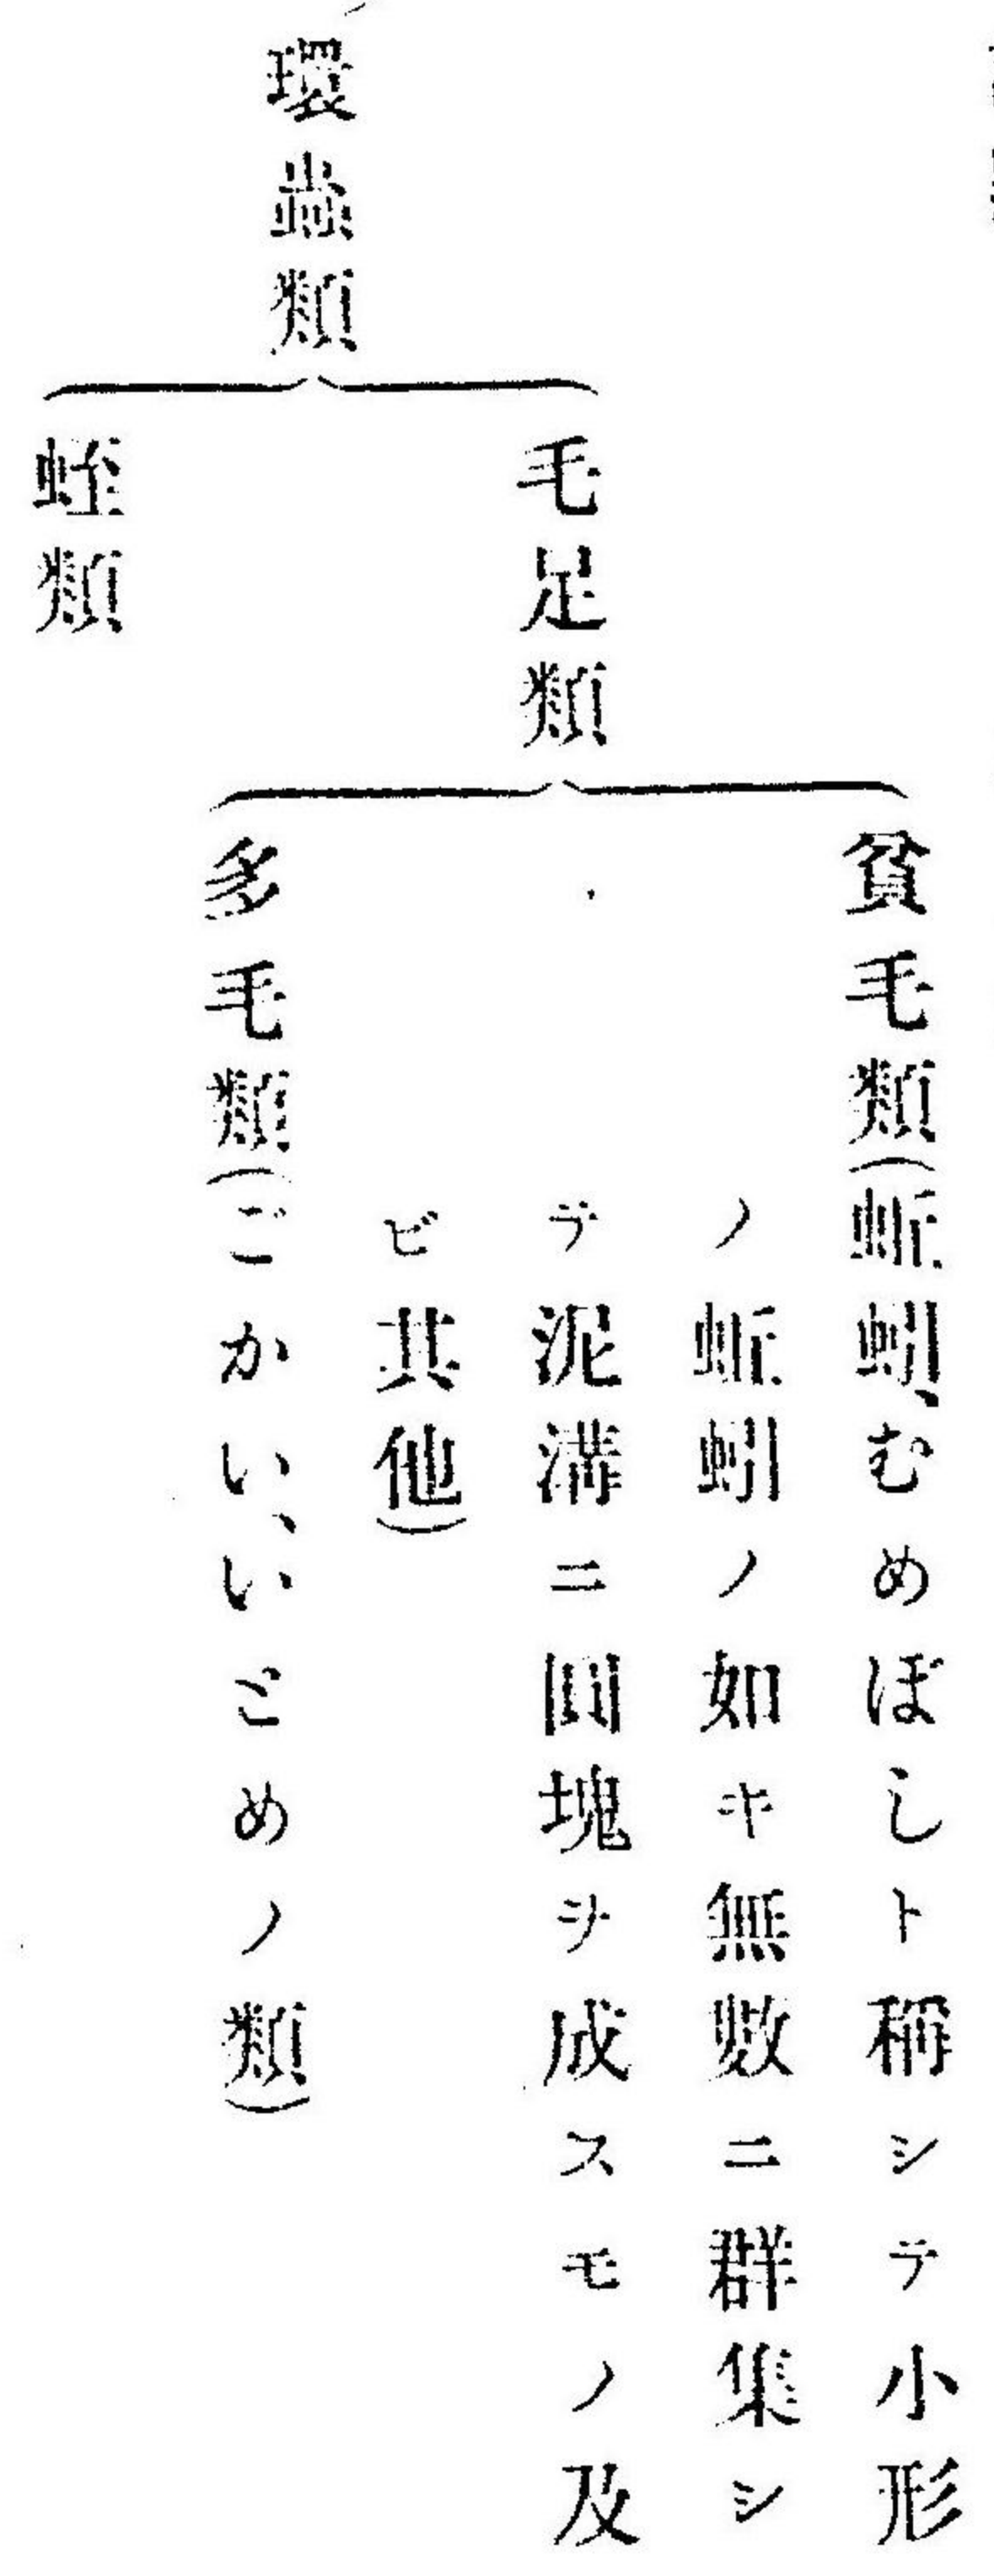 環蟲類
毛足類
貧毛類(蚯蚓、むめぼしト稱シテ小形
ノ蚯蚓ノ如キ無數ニ群集シ
テ泥溝ニ圓塊ヲ成スモノ及
ビ其他)
多毛類(ごかい、いとめノ類)
蛭類